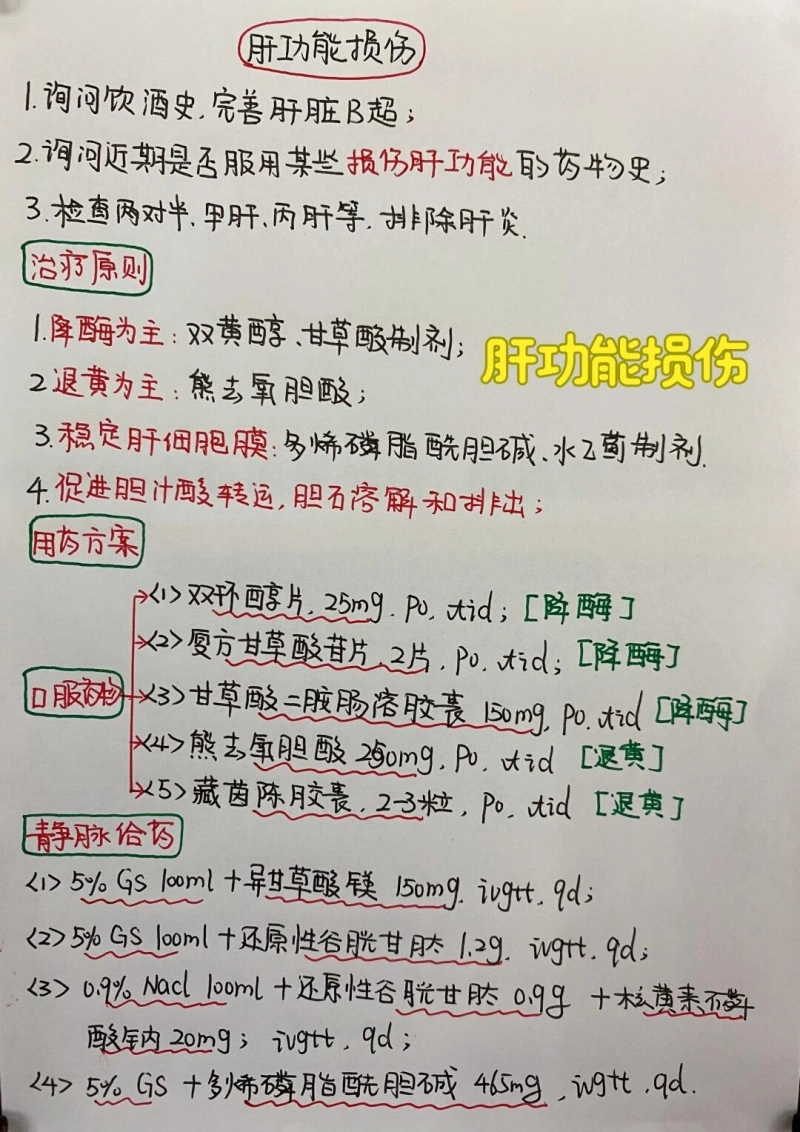 肝功能损伤
1.询问饮酒史,完善肝脏B超;
2.询问近期是否服用某些损伤肝功能的药物史;
3.检查两对半、甲肝、丙肝等,排除肝炎.
治疗原则
1.降酶为主:双黄醇、甘草酸制剂;
肝功能损伤
2.退黄为主:熊去氧胆酸;
3.稳定肝细胞膜:多烯磷脂酰胆碱、水飞蓟制剂.
4.促进胆汁酸转运,胆石溶解和排出;
用药方案
口服药物
<1>双环醇片,25mg.po.tid; [降酶]
<2>复方甘草酸苷片,2片,po.tid; [降酶]
<3>甘草酸二胺肠溶胶囊 150mg,po.tid [降酶]
<4>熊去氧胆酸 250mg,po.tid [退黄]
<5>藏茵陈胶囊,2-3粒,po,tid [退黄]
静脉给药
<1>5%GS 100ml+异甘草酸镁 150mg.ivgtt.qd;
<2>5%GS 100ml+还原性谷胱甘肽 1.2g.ivgtt.qd;
<3>0.9%Nacl 100ml+还原性谷胱甘肽0.9g+核黄素磷
酸钠20mg;ivgtt,qd;
<4>5%GS+多烯磷脂酰胆碱 465mg,ivgtt.qd.